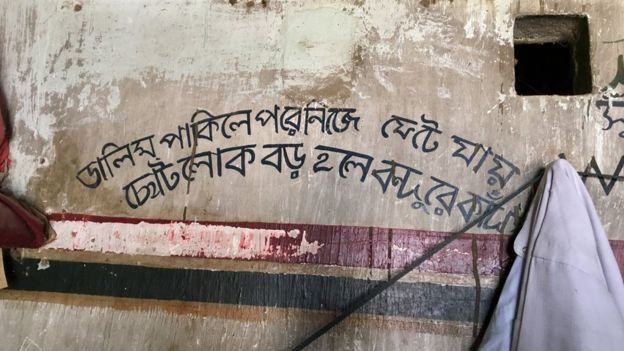 ডালিম পাকিলে পরে নিজে ফেটে যায়
ছোট লোক বড় হলে বন্দুরে কাঁদায়